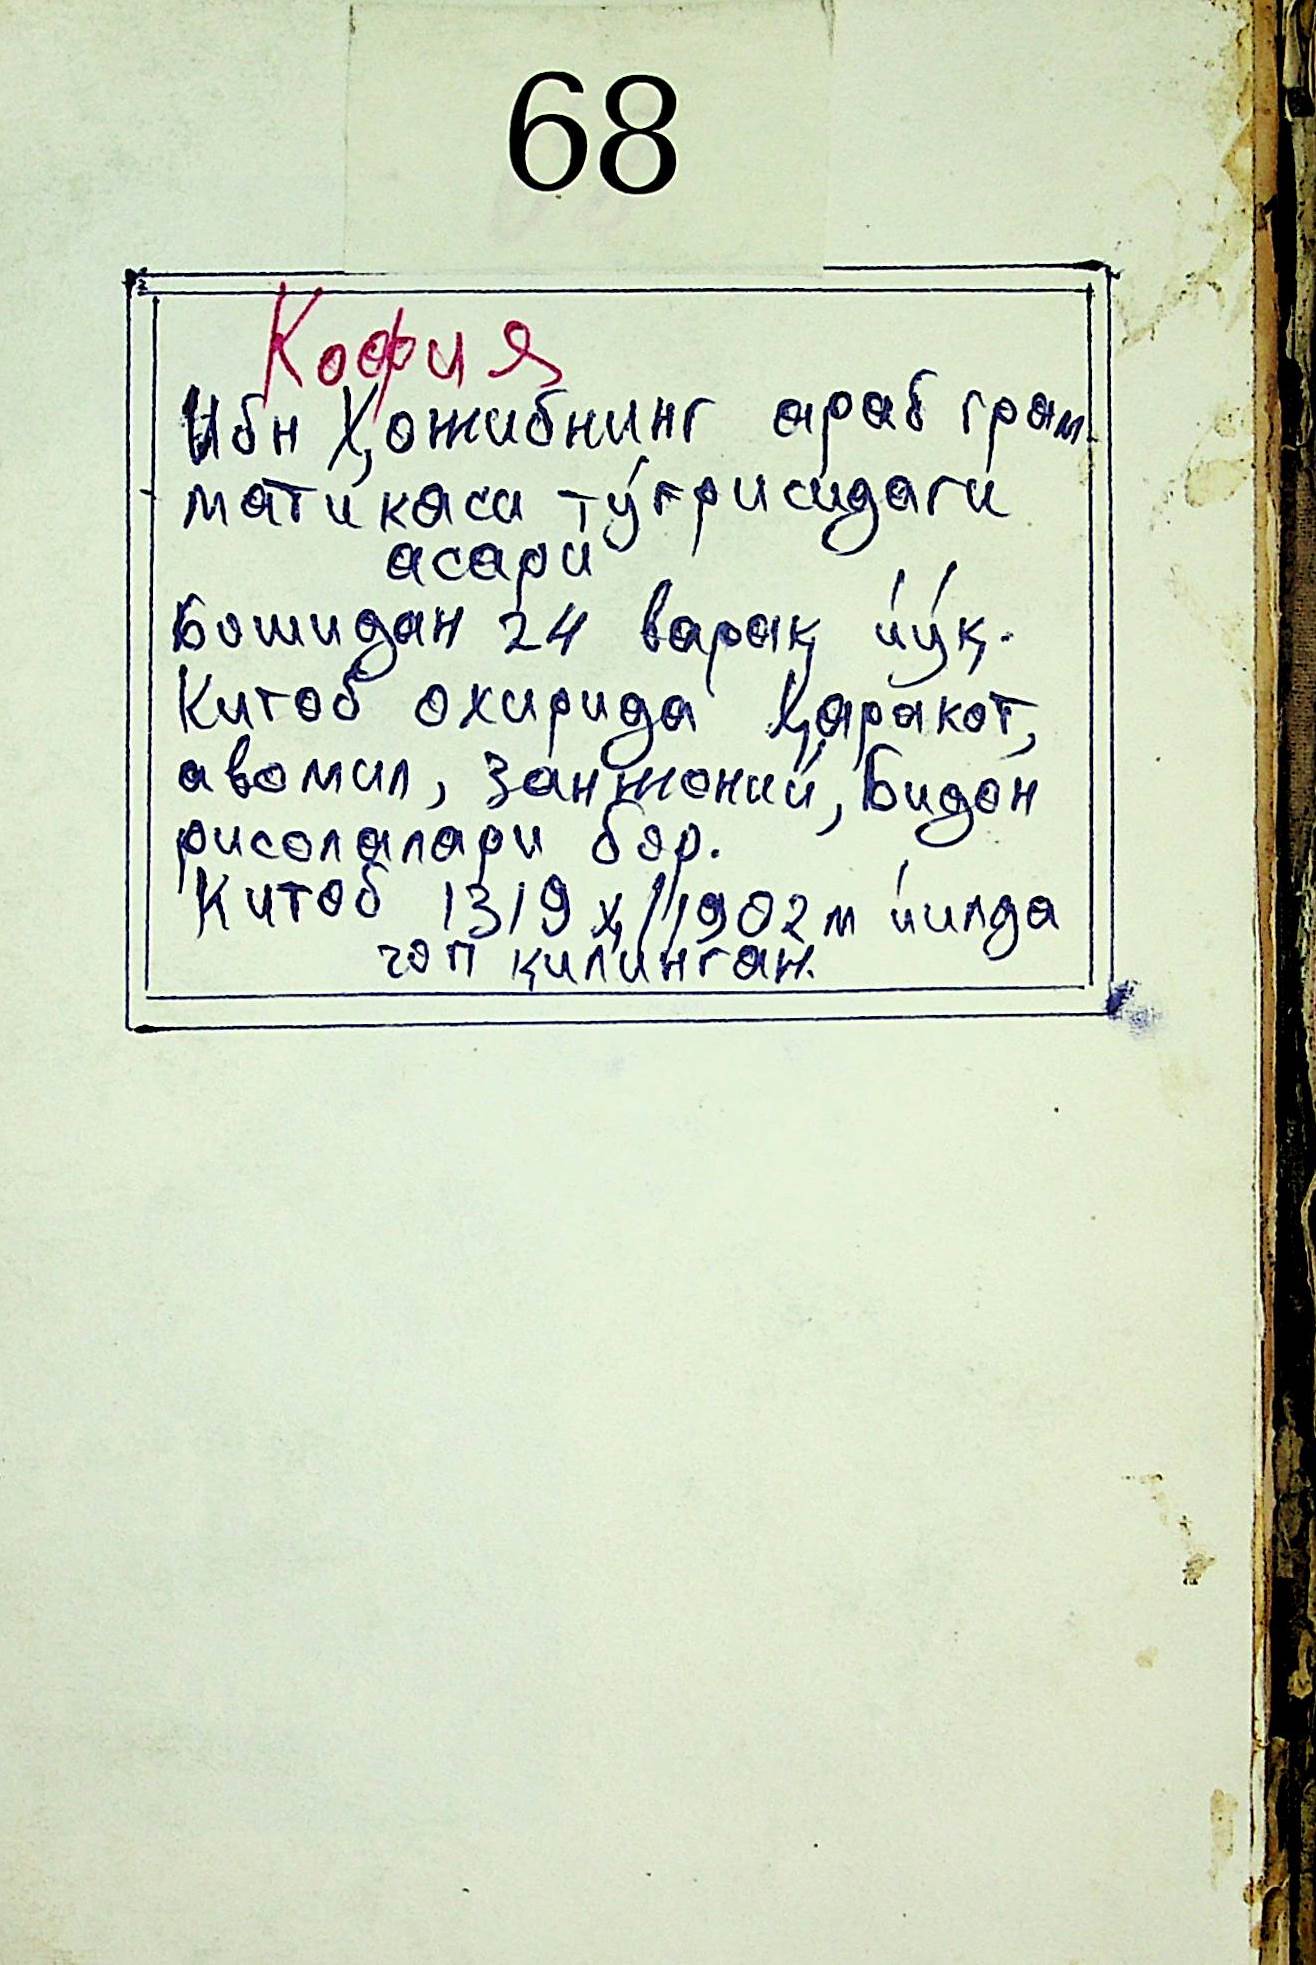 68
Кофия
Ибн Ҳожибнинг араб грам
матикаси тўғрисидаги
асари
Бошидан 24 варақ йўқ.
Китоб охирида ҳаракот,
авомил, занжоний, Бидон
рисолалари бор.
Китоб 1319 ҳ//1902 м йилда
чоп қилинган.